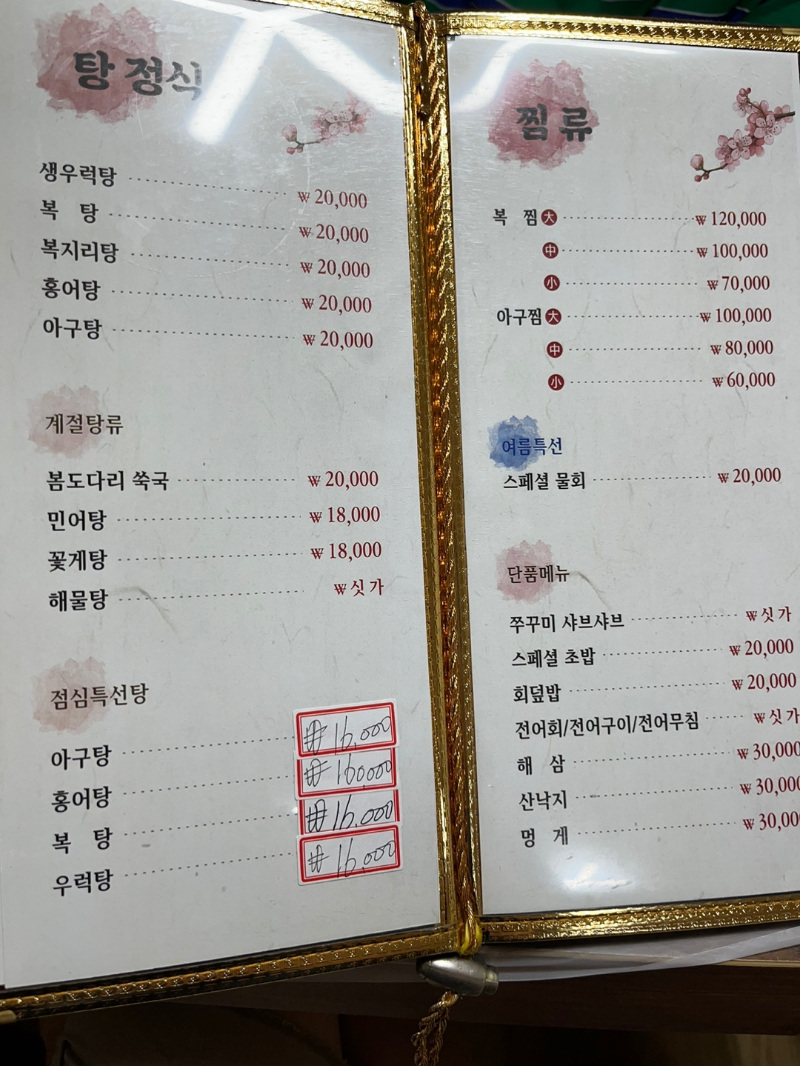 탕 정식
생우럭탕 ₩ 20,000
복 탕 ₩ 20,000
복지리탕 ₩ 20,000
홍어탕 ₩ 20,000
아구탕 ₩ 20,000
계절탕류
봄도다리 쑥국 ₩ 20,000
민어탕 ₩ 18,000
꽃게탕 ₩ 18,000
해물탕 ₩ 싯가
점심특선탕
아구탕 ₩ 16,000
홍어탕 ₩ 16,000
복 탕 ₩ 16,000
우럭탕 ₩ 16,000
찜 류
복 찜 大 ₩ 120,000
中 ₩ 100,000
小 ₩ 70,000
아구찜 大 ₩ 100,000
中 ₩ 80,000
小 ₩ 60,000
여름특선
스페셜 물회 ₩ 20,000
단품메뉴
쭈꾸미 샤브샤브 ₩ 싯가
스페셜 초밥 ₩ 20,000
회덮밥 ₩ 20,000
전어회/전어구이/전어무침 ₩ 싯가
해 삼 ₩ 30,000
산낙지 ₩ 30,000
멍 게 ₩ 30,000